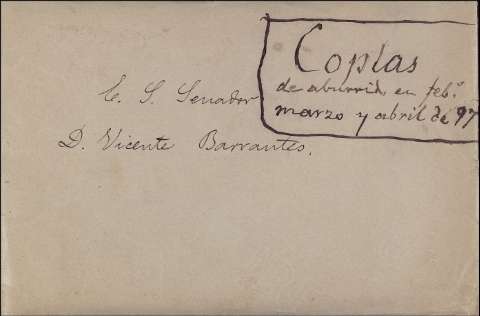 Coplas
de aburrido en feb.º
marzo y abril de 97
E. S. Senador
D. Vicente Barrantes.